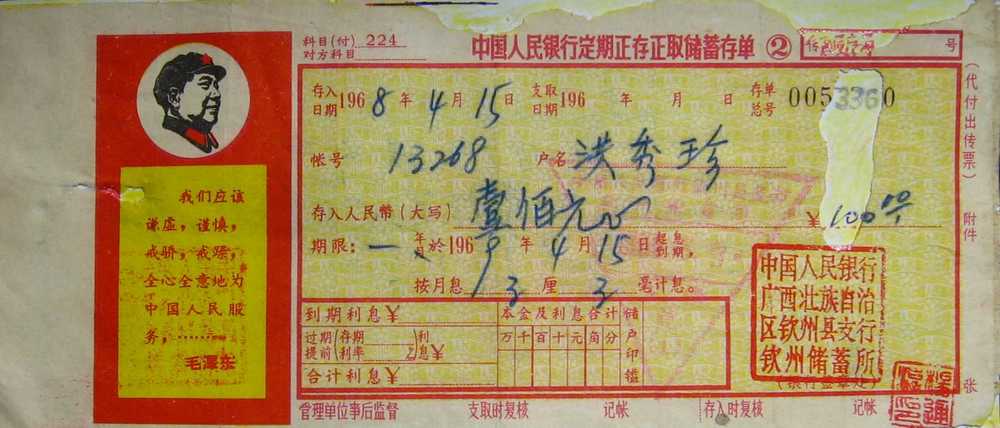 科目(付) 224
对方科目:
中国人民银行定期正存正取储蓄存单 ②
号
(代付出传票)
附件
张
存入日期 1968年4月15日
支取日期 196 年 月 日
存单总号 00533360
帐号 13268
户名 洪秀珍
存入人民币(大写) 壹佰元
¥100 00
期限:一年於1969年4月15日起息到期,
按月息 3厘 3毫计息。
到期利息¥
过期(存期 )利
提前(利率 )息¥
合计利息¥
本金及利息合计
万千百十元角分
储户印鉴
中国人民银行
广西壮族自治
区钦州县支行
钦州储蓄所
管理单位事后监督
支取时复核
记帐
存入时复核
记帐
我们应该
谦虚,谨慎,
戒骄,戒躁,
全心全意地为
中国人民服
务,……
毛泽东